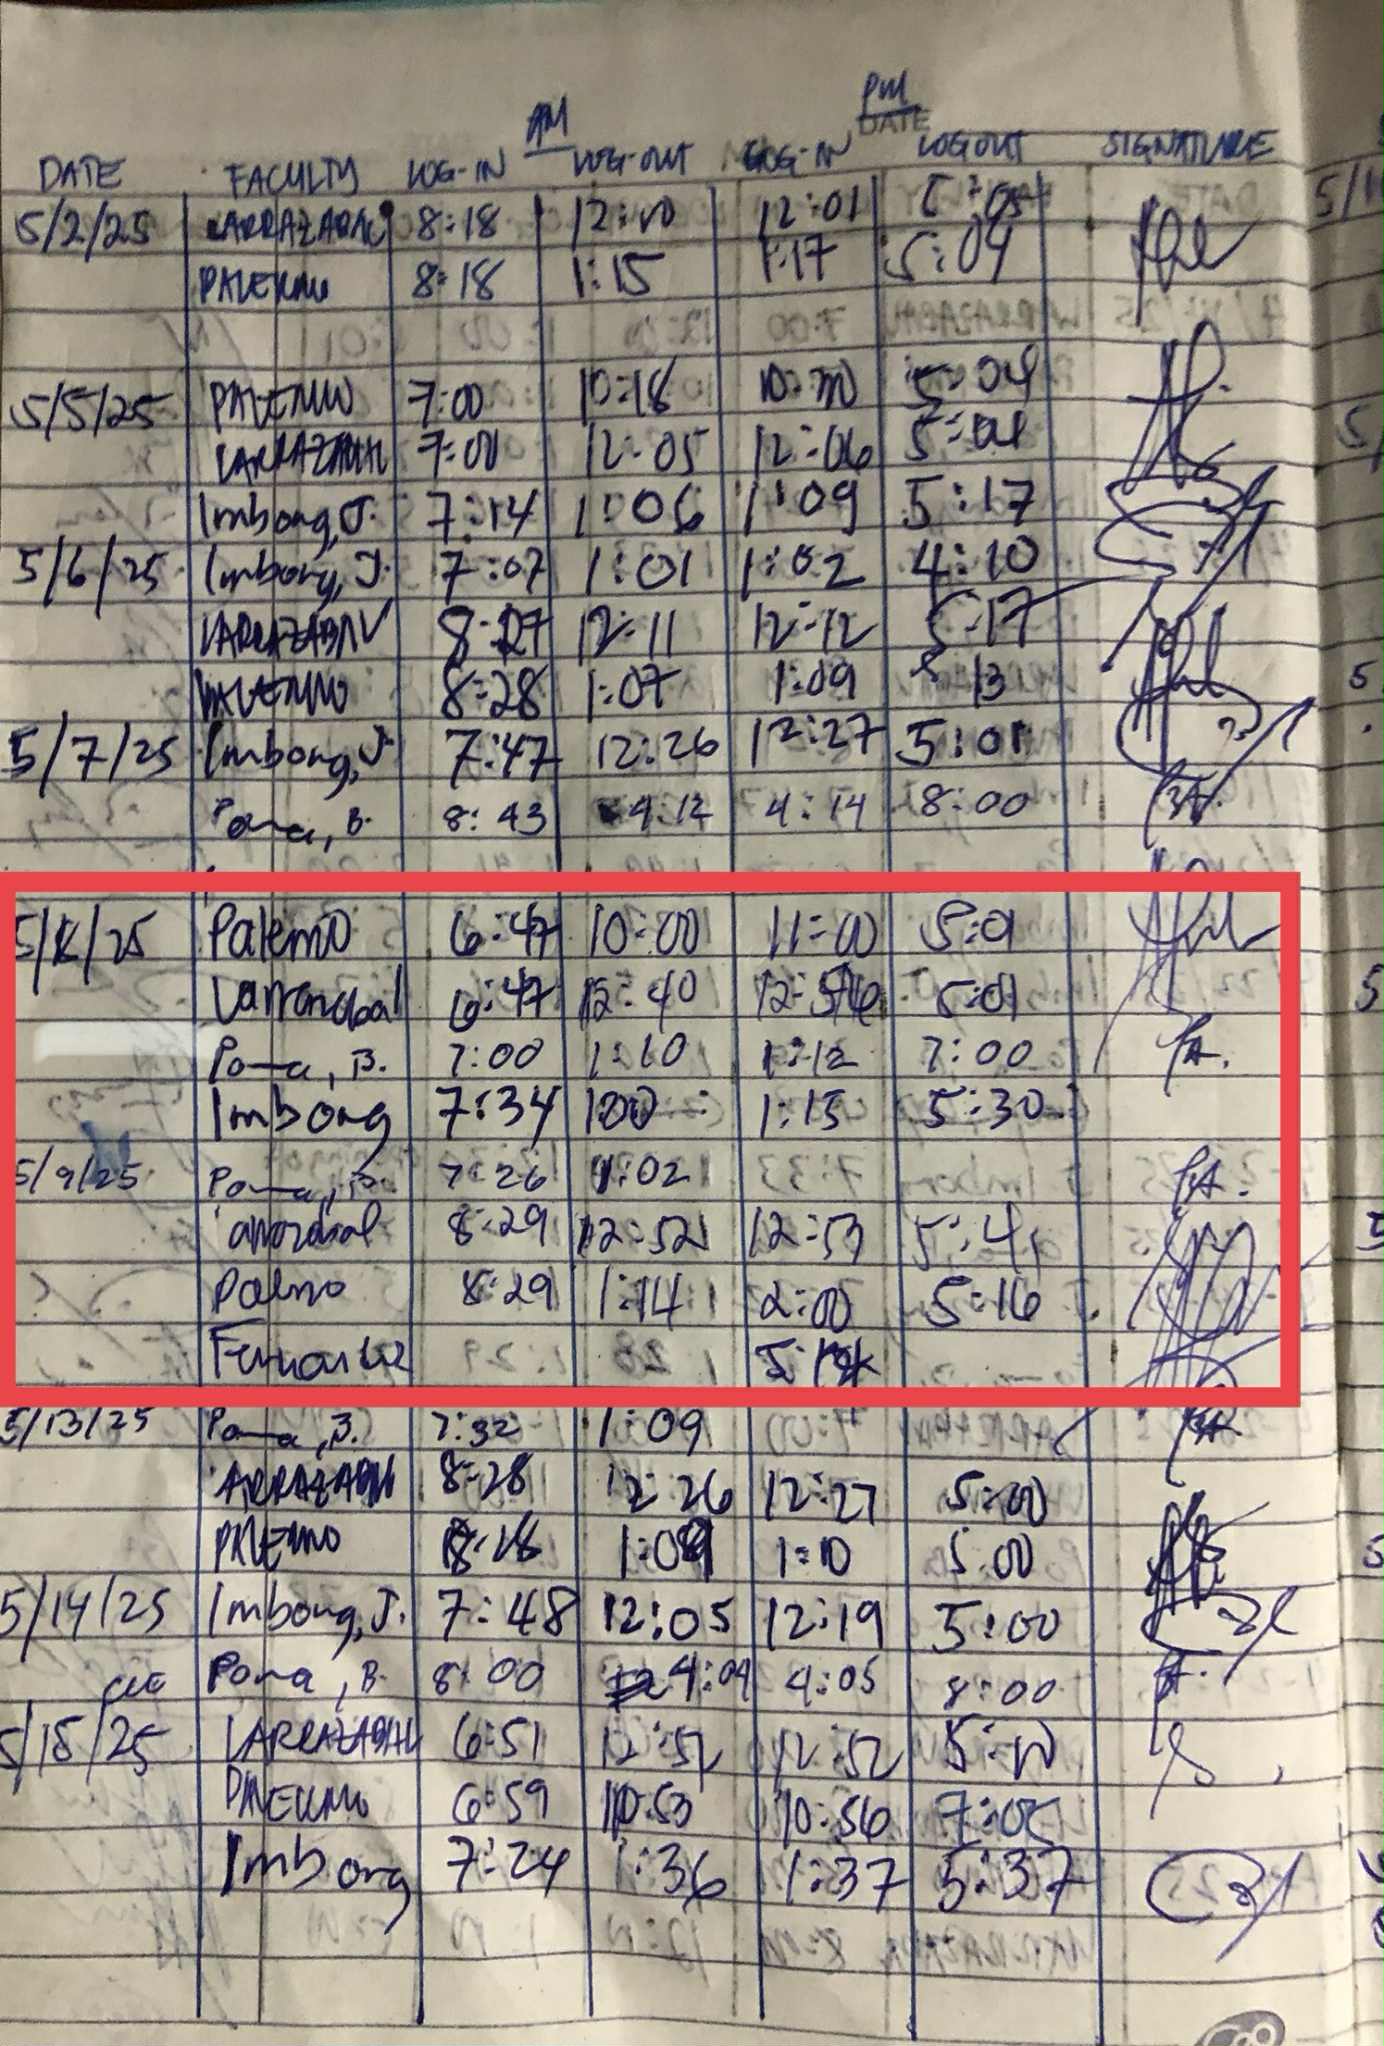 AM PM
DATE
DATE FACULTY LOG-IN LOG-OUT LOG-IN LOGOUT SIGNATURE
5/2/25 LARRAZABAL 8:18 12:00 12:01 5:05
PALERMO 8:18 1:15 1:17 5:04
5/5/25 PALERMO 7:00 10:18 10:30 5:04
LARRAZABAL 7:00 12:05 12:06 5:04
Imbong, J. 7:14 1:06 1:09 5:17
5/6/25 Imbong, J. 7:07 1:01 1:02 4:10
LARRAZABAL 8:27 12:11 12:12 5:17
PALERMO 8:28 1:07 1:09 13
5/7/25 Imbong, J. 7:47 12:26 12:27 5:01
Poma, B. 8:43 4:12 4:14 8:00
25 Palermo 6:47 10:00 11:00 5:01
Larrazabal 6:47 12:40 5:01
Poma, B. 7:00 1:10 1:12 7:00
Imbong 7:34 1:00 1:15 5:30
5/9/25 Poma, B. 7:26 1:02
Larrazabal 8:29 12:52 12:53
Palermo 8:29 1:14 2:00 5:16
Fernandez
5/13/25 Poma, B. 7:32 1:09
LARRAZABAL 8:28 12:26 12:27 5:00
PALERMO 8:28 1:09 1:10 5:00
5/14/25 Imbong, J. 7:48 12:05 12:19 5:00
Poma, B. 8:00 4:04 4:05 8:00
5/15/25 LARRAZABAL 6:51 12:52 12:52 5:10
PALERMO 6:59 10:53 10:56 7:05
Imbong 7:24 1:36 1:37 5:37